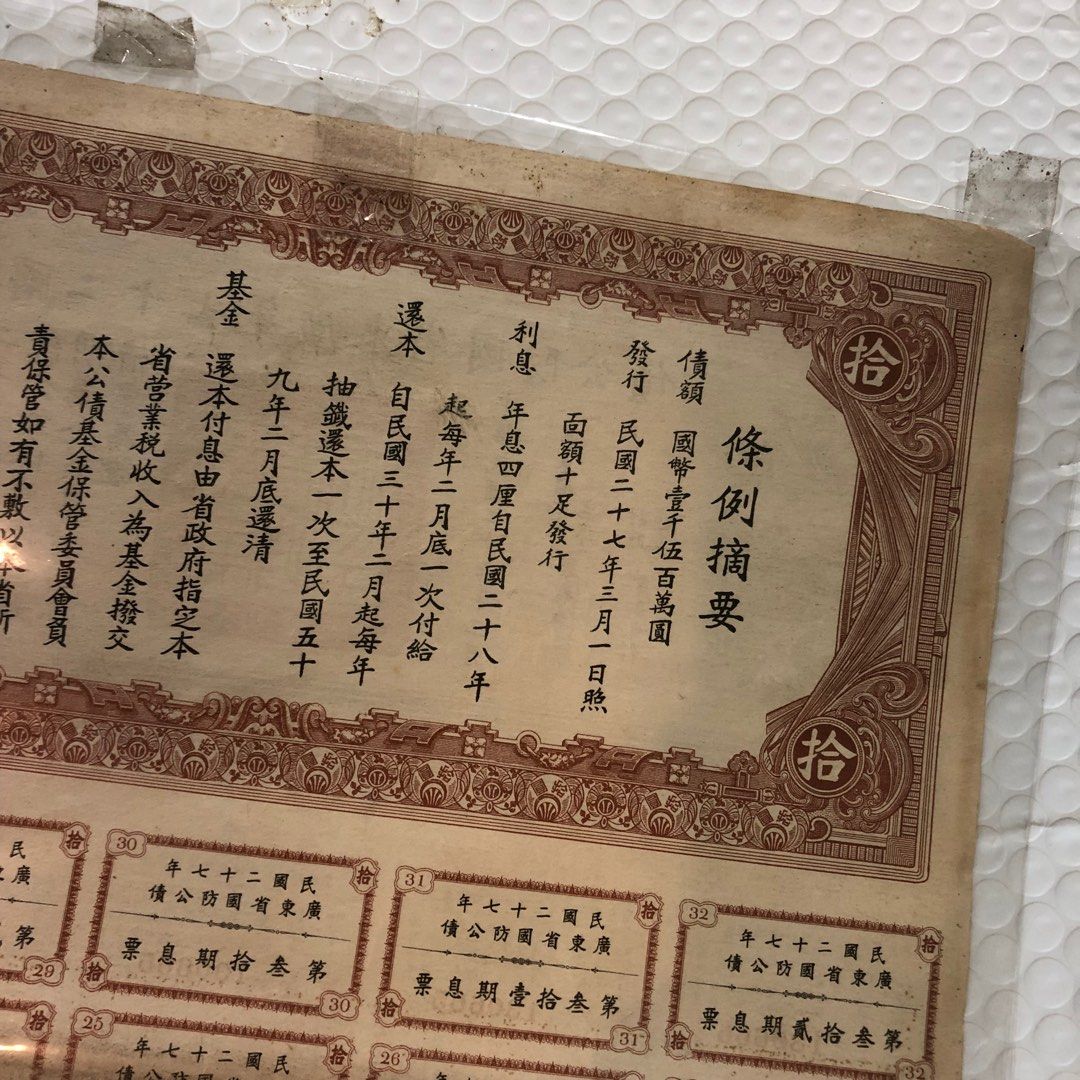 條例摘要
債額 國幣壹千伍百萬圓
發行 民國二十七年三月一日照
面額十足發行
利息 年息四厘自民國二十八年
起每年二月底一次付給
還本 自民國三十年二月起每年
抽籤還本一次至民國五十
九年二月底還清
基金 還本付息由省政府指定本
省营業税收入為基金撥交
本公債基金保管委員會負
責保管如有不敷以本省所
拾
拾
32
拾
民國二十七年
廣東省國防公債
第叁拾貳期息票
拾
32
31
拾
民國二十七年
廣東省國防公債
第叁拾壹期息票
拾
31
30
拾
民國二十七年
廣東省國防公債
第叁拾期息票
拾
30
拾
民
廣
第
29
26
25
拾
民國二十七年
拾